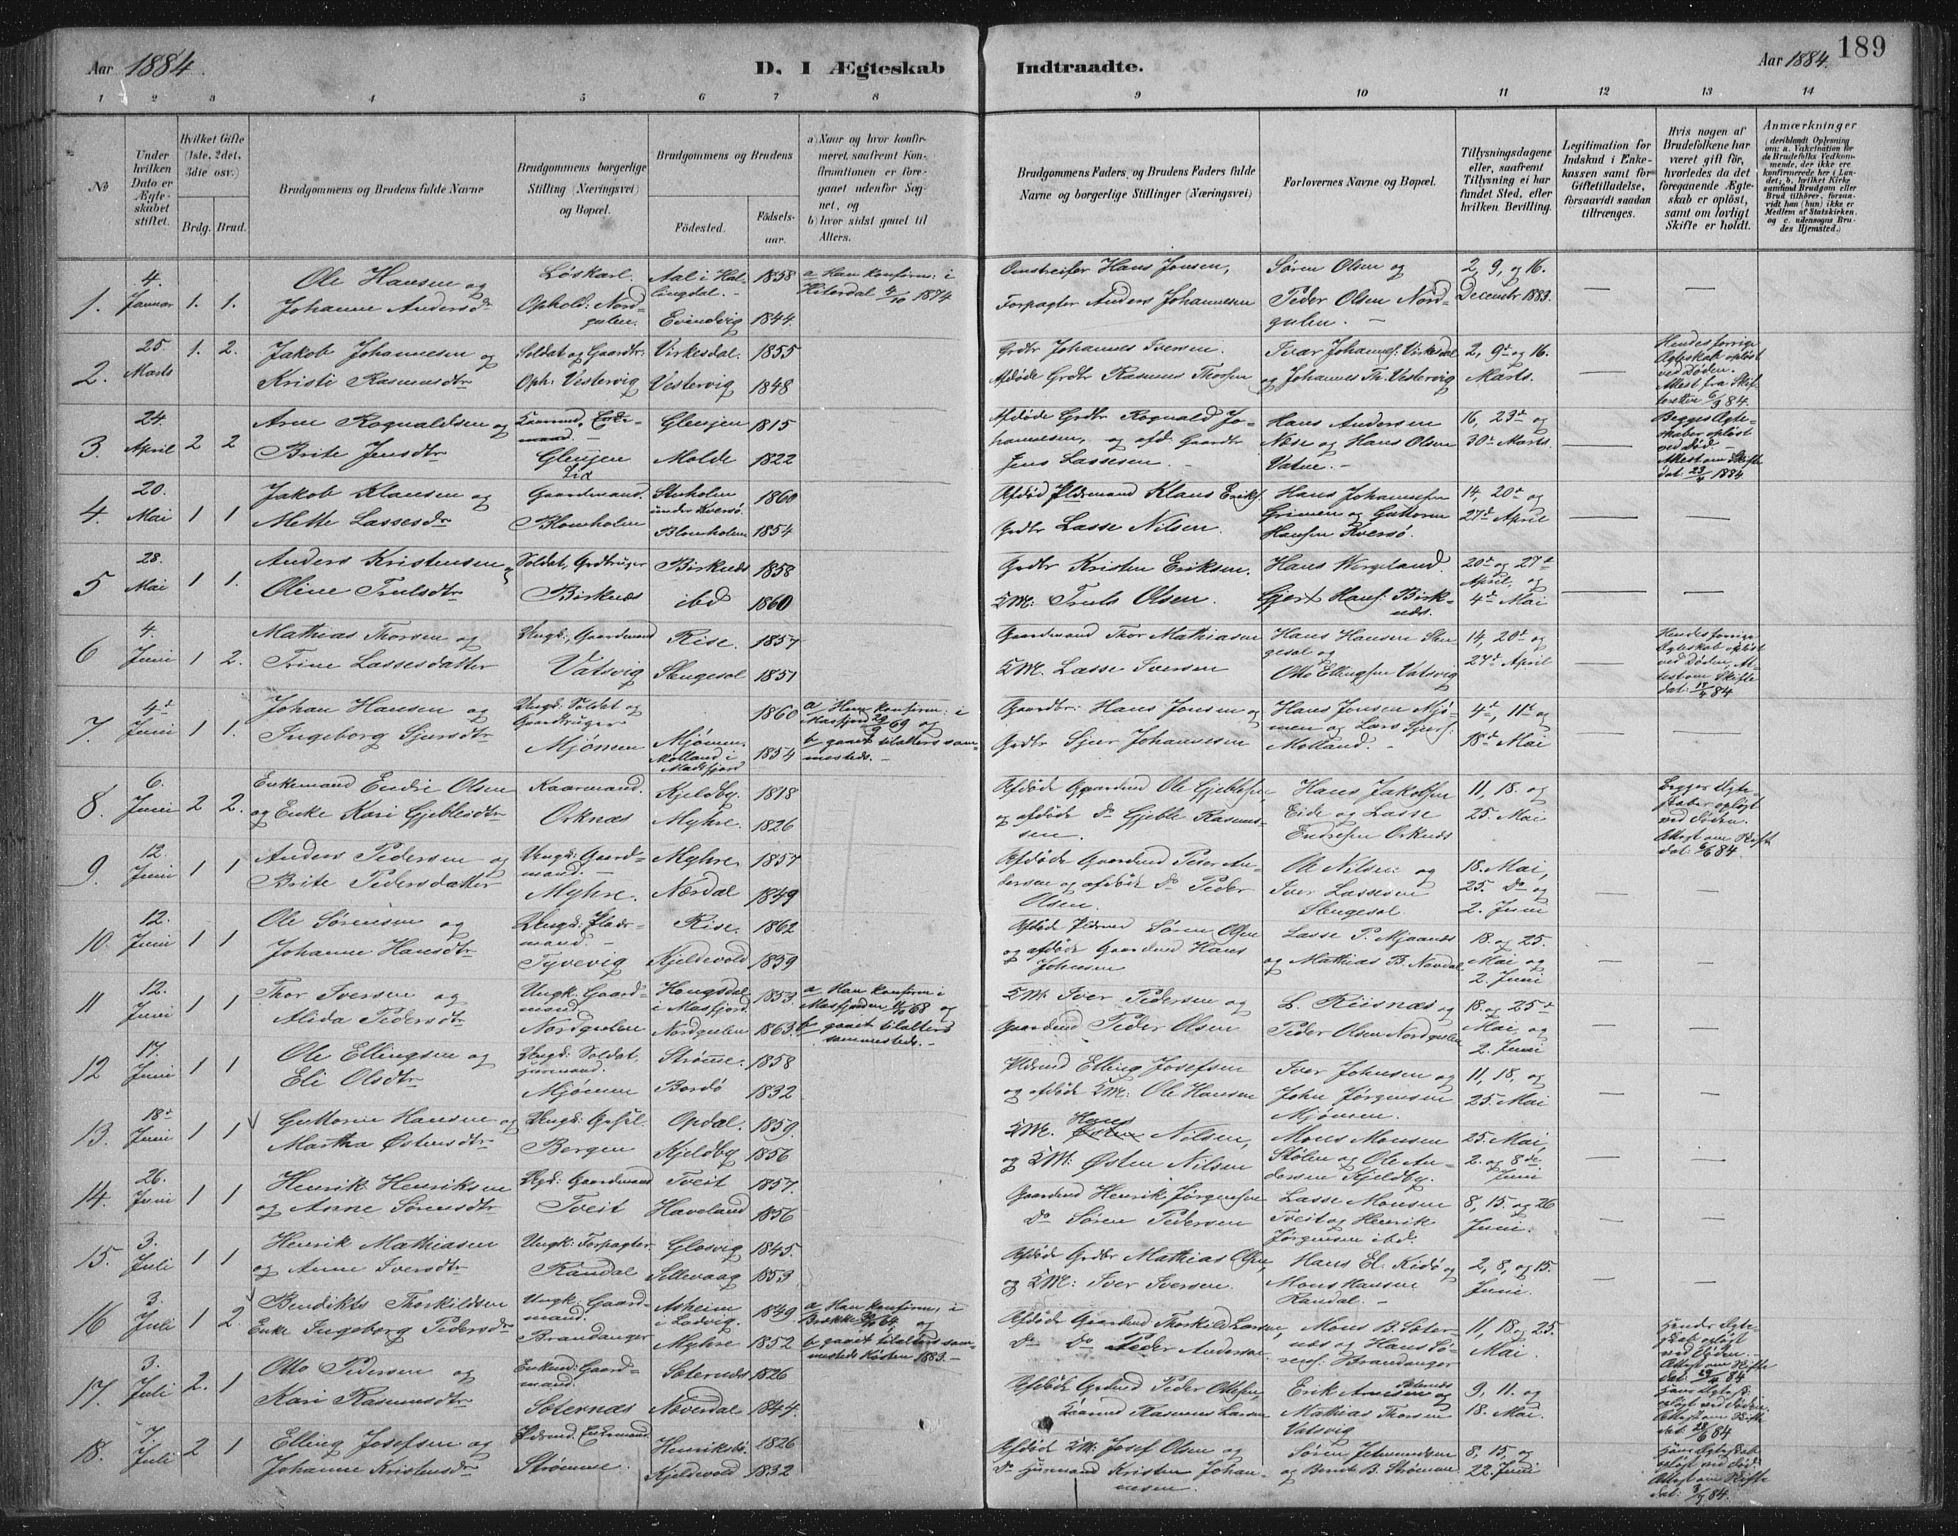 Aar 1884.
D. I Ægteskab
Indtraadte.
Aar 1884.
189
1 2 3 4 5 6 7 8 9 10 11 12 13 14
No
Under hvilken Dato er Ægteskabet stiftet.
Hvilket Gifte (1ste, 2det, 3die osv.)
Brdg. Brud.
Brudgommens og Brudens fulde Navne
Brudgommens borgerlige Stilling (Næringsvei) og Bopæl.
Brudgommens og Brudens
Fødested.
Fødselsaar.
a) Naar og hvor konfirmeret, saafremt Konfirmationen er foregaaet udenfor Sognet, og
b) hvor sidst gaaet til Alters.
Brudgommens Faders, og Brudens Faders fulde Navne og borgerlige Stillinger (Næringsvei)
Forlovernes Navne og Bopæl.
Tillysningsdagene eller, saafremt Tillysning ei har fundet Sted, efter hvilken Bevilling.
Legitimation for Indskud i Enkekassen samt for Giftetilladelse, forsaavidt saadan tiltrænges.
Hvis nogen af Brudefolkene har været gift før, hvorledes da det foregaaende Ægteskab er opløst, samt om lovligt Skifte er holdt.
Anmærkninger
(deriblandt Oplysning om: a. Vakcination for de Brudefolks Vedkommende, der ikke ere konfirmerede her i Landet; b. hvilket Kirkesamfund Brudgom eller Brud tilhører, forsaavidt han (hun) ikke er Medlem af Statskirken, og c. udensogns Brudes Hjemsted.)
1. 4. Januar 1. 1.
Ole Hansen og
Johanne Andersdr
Løskarl.
Ophold. Nordgulen.
Aal i Hallingdal. 1858
Evindvig 1844.
a Han konfirm: i Hiterdal 4/10 1874
Omstreifer Hans Jonsen,
Forpagter Anders Johannesen
Søren Olsen og
Peder Olsen Nordgulen.
2, 9, og 16. December 1883.
2. 25. Marts 1. 2.
Jakob Johannesen og
Kristi Rasmusdtr
Soldat og Gaardbr.
Oph: Vestervig
Virkesdal. 1855
Vestervig 1848
Grdbr Johannes Iversen.
Afdøde Grdbr Rasmus Thorsen
Ivar Johannes. Virkesdal
og Johannes Th. Vestervig
2, 9de og 16. Marts.
Hendes forrige Ægteskab opløst ved Døden. Attest fra Skifteretten 6/3 84.
3. 24. April 2 2
Arne Rognaldsen og
Brite Jensdtr
Glenjen
Glenjen 1815
Molde 1822
Afdøde Grdbr Rognald Johannesen, og afd. Gaardbr Jens Lassesen.
Hans Andersen Nese og Hans Olsen Vatne.
16, 23de og 30de Marts.
Begges Ægteskaber opløst ved Død. Attest om Skifte dat. 23/4 1884
4. 20. Mai 1 1
Jakob Klausen og
Mette Lassesdr
Gaardmand.
Blomholm
Stenholm under Kversø. 1860
Blomholm 1854
Afdød Pldsmand Klaus Eriks.
Grdbr Lasse Nilsen.
Hans Johannesen Grimen og Guttorm Hansen Kversø.
14, 20de og 27de April
5 28. Mai 1 1.
Anders Kristensen og
Oline Trulsdtr
Soldat, Grdbruger
Birknes
Birknes 1858
ibd 1860
Grdbr Kristen Eriksen.
Truls Olsen.
Hans Wergeland.
Gjert Hans. Birknes.
20de og 27de April, og 4de Mai
6 4. Juni 1 2.
Mathias Thorsen og
Trine Lassesdatter
Ungk., Gaardmand
Vatsvig
Rise. 1857
Stengesol 1851
Gaardmand Thor Mathiasen
Lasse Iversen
Hans Hansen Stengesol og
Otto Ellingsen Vatsvig
14, 20de og 27de April
Hendes forrige Ægteskab opløst ved Døden, Attest om Skifte dat. 84
7. 4de Juni 1 1.
Johan Hansen og
Ingeborg Sjursdtr
Ungk. Soldat og Gaardbruger
Mjømen
Mjømen 1860
Molland i Masfjord 1854
a Han konfirm: i Masfjord 69 og b gaaet tilalters sammesteds.
Gaardbr: Hans Jonsen og
Grdbr Sjur Johannesen
Hans Jonsen Mjømen og Lars Sjurs. Molland.
4de, 11te og 18de Mai
8. 6. Juni 2 2.
Enkemand Endre Olsen
og Enke Kari Gjeblesdtr
Kaarmand.
Orknes
Kjeldby. 1818
Myhre. 1826
Afdøde Gaardmd Ole Gjeblesen,
og afdøde Do Gjeble Rasmussen.
Hans Jakobsen Eide og Lasse Endresen Orknes
11, 18. og 25 Mai
Begges Ægteskaber opløst ved Døden. Attest om Skifte dat: 6/6 84.
9. 12. Juni 1 1
Anders Pedersen og
Brite Pedersdatter
Ungk. Gaardmand.
Myhre.
Myhre. 1857
Nærdal 1849
Afdøde Gaardmd Peder Andersen og afdøde Do Peder Olsen.
Ole Nilsen og
Iver Lassesen Stengesol
18. Mai, 25. Do og 2. Juni
10. 12. Juni 1 1
Ole Sørensen og
Johanne Hansdtr
Ungk. Pladsmand.
Tyvevig
Rise. 1862
Kjeldevold 1859
Afdøde Pldsmd Søren Olsen
og afdøde Gaardmd Hans Johnsen
Lasse P. Mjaanes
og Mathias B. Nævdal
18. og 25. Mai og 2. Juni
11 12. Juni 1 1
Thor Iversen og
Alida Pedersdtr
Ungk: Gaardmand
Nordgulen
Hougsdal i Masfjord 1853.
Nordgulen 1863.
a Han konfirm i Masfjorden 68 og b gaaet tilalters sammesteds.
Iver Pedersen og
Gaardmd Peder Olsen
L. Riisnæs og
Peder Olsen Nordgulen
18. og 25de Mai, og 2. Juni
12 17. Juni 1 1
Ole Ellingsen og
Eli Olsdtr
Ungk: Soldat, Husmand.
Mjømen
Strømme. 1858
Bordø 1832
Pldsmd Elling Josefsen
og afdøde Ole Hansen
Iver Johnsen og
John Jørgensen Mjømen.
11, 18, og 25. Mai
13. 18de Juni 1 1
Guttorm Hansen og
Martha Østensdtr
Bergen
Opdal. 1859.
Kjeldby 1856
Hans Nilsen,
og Østen Nilsen
Mons Monsen Stølen og Ole Andersen Kjeldby.
25. Mai, 2. og 8de Juni
14. 26. Juni 1 1
Henrik Henriksen
og Anne Sørensdtr
Ugk: Gaardmand
Tveit
Tveit 1857.
Haveland 1856
Gaardmd Henrik Jørgensen
Do Søren Pedersen
Lasse Monsen Tveit og Henrik Jørgensen ibd.
8, 15. og 26 Juni.
15. 3. Juli 1 1
Henrik Mathiasen
og Anne Iversdtr
Ungk: Forpagter.
Randal
Glosvig 1845.
Sellevaag 1853
Afdøde Grdbr Mathias Olsen,
og Iver Iversen.
Hans El. Kidø og
Mons Hansen Randal.
2, 8, og 15. Juni.
16 3. Juli 1 2.
Bendikts Thorkildsen
Enke Ingeborg Pedersdr
Ungk. Gaardmand.
Brandanger
Asheim i Ladvig. 1849.
Myhre 1852
a Han konfirm, i Brække 64, og b gaaet tilalters sammesteds Høsten 1883.
Afdøde Gaardmd Thorkild Larsen,
Do Do Peder Andersen
Mons B. Soternes og Hans Sørens. Brandanger
11, 18. og 25. Mai.
Hendes Ægteskab opløst ved Døden. Attest om Skifte dat. 84
17. 3. Juli 2. 1
Otto Pedersen og
Kari Rasmusdtr
Enkemd: Gaardmand.
Soternæs
Soternes 1826
Næverdal 1844.
Afdøde Grdmd Peder Ottesen
Rasmus Larsen
Erik Arnesen Soternes og
Mathias Thorsen Vatsvig
9, 11. og 18. Mai.
Hans Ægtesk. opløst ved Døden. Attest om Skifte dat: 84
18. 7. Juli 2 1
Elling Josefsen og
Johanne Kristensdr
Pldsmd. Enkemand.
Strømme.
Henriksbø. 1826
Kjeldevold 1832
Afdød Josef Olsen og
Do Husmand Kristen Johannesen.
Søren Jetmundsen
og Bernt B. Strømme
8, 15, og 22. Juni
Hans Ægteskab opløst ved Død. Attest om Skifte dat: 84.